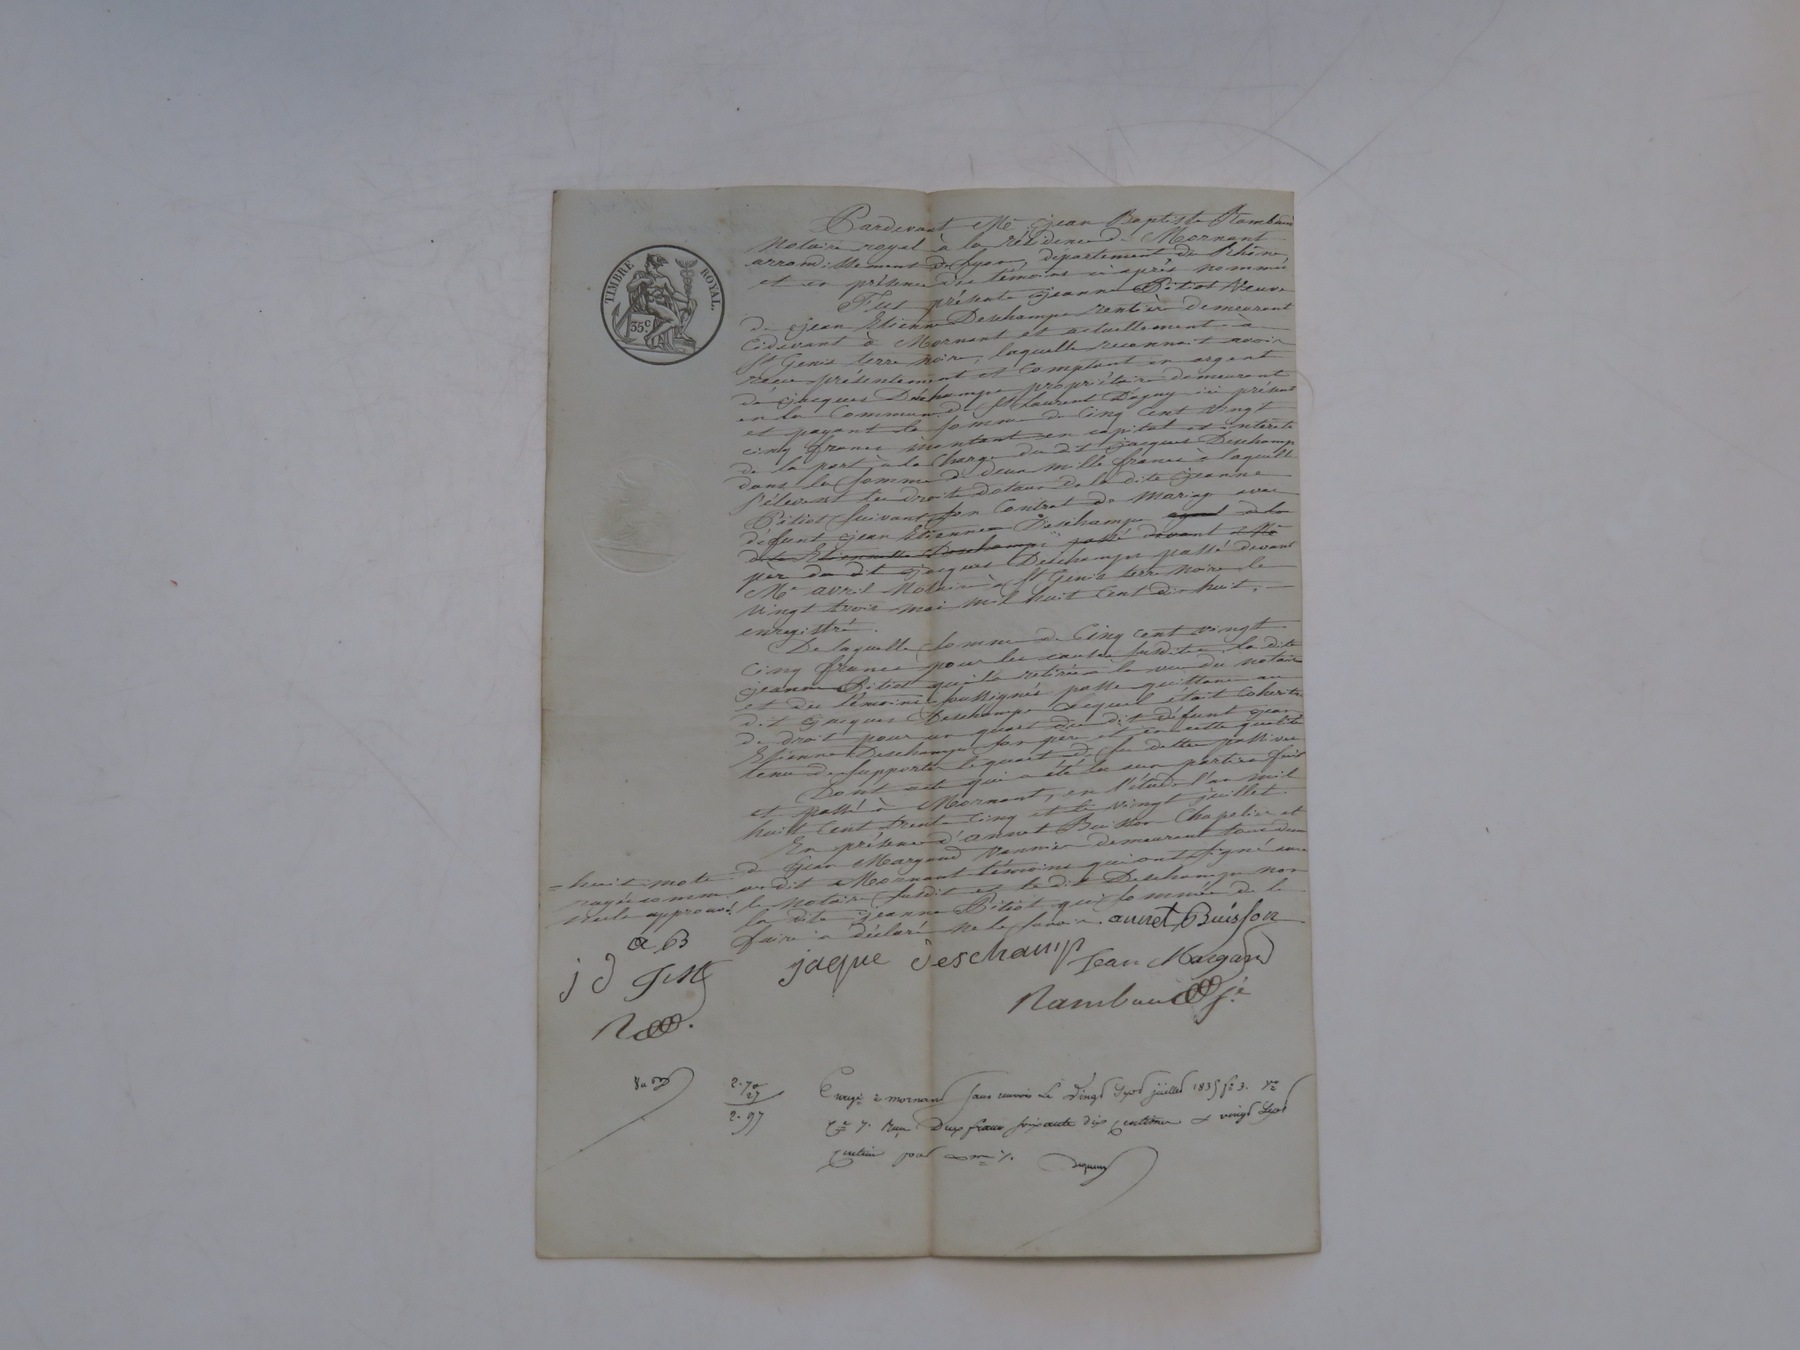 TIMBRE ROYAL.
35c.
Pardevant Me Jean Baptiste Rambaud
Notaire royal à la résidence de Mornant
arrondissement de Lyon, département du Rhône,
et en présence des témoins ci après nommés
Fut présente Jeanne Pitiot Veuve
de Jean Etienne Deschamps rentière demeurant
Cidevant à Mornant et actuellement à
St Genis terre noire, laquelle reconnait avoir
reçu présentement et Comptant en argent
de Jacques Deschamps propriétaire demeurant
en la Commune de St Laurent D'agny ici présent
et payant la somme de Cinq Cent Vingt
cinq francs montant en capital et intérêts
de la part à la Charge du dit Jacques Deschamps
dans la somme de deux mille francs à laquelle
s'élevent les droits dotaux de la dite Jeanne
Pitiot suivant son Contrat de Mariage avec
défunt Jean Etienne Deschamps ayeul de la
dite Etiennette Deschamps passé devant Me
père du dit Jacques Deschamps passé devant
Me avril Notaire à St Genis terre Noire le
vingt trois mai mil huit Cent dix huit,
enregistré.
De laquelle somme de Cinq Cent vingt
cinq francs pour les causes susdites la dite
Jeanne Pitiot qui l'a retirée à la vue du notaire
et des témoins soussignés passe quittance au
dit Jacques Deschamps lequel était Cohéritier
de droit pour un quart du dit défunt Jean
Etienne Deschamps son père et en cette qualité
tenu de supporter le quart de ses dettes passives
Dont acte qui a été lu aux parties fait
et passé à Mornant, en l'étude l'an mil
huit Cent trente cinq et le vingt juillet
En présence d'annet Buisson Chapelier et
de Jean Margand Vannier demeurant tous deux
au dit Mornant témoins qui ont signé avec
le Notaire susdit et le dit Deschamps non
la dite Jeanne Pitiot qui sommée de le
faire a déclaré ne le savoir.
= huit mots
rayés comme
nuls approuvé.
annet Buisson
a B
j d
J M
jaque deschamp
Jean Margand
R
Rambaud
2.70
27
2.97
Enregé à mornant sans renvois Le Vingt Sept juillet 1835 fo 3. Vo
Ce 7. Reçu Deux francs soixante dix Centimes et vingt Sept
Centimes pour